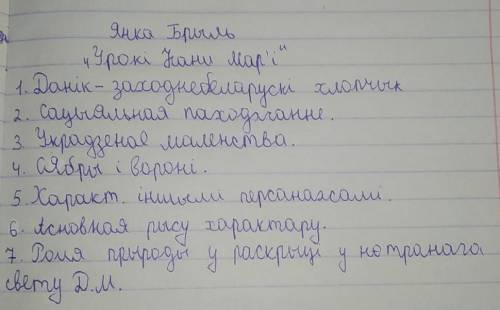 Янка Брыль
"Урокі Пані Мар'і"
1. Данік - заходнебеларускі хлопчык
2. Сацыяльная паходжанне.
3. Украдзенае маленства.
4. Сябры і вороні.
5. Характ. іншымі персанажамі.
6. Асновная рысу характару.
7. Роля прыроды у раскрыці унотранага
свету Д.М.